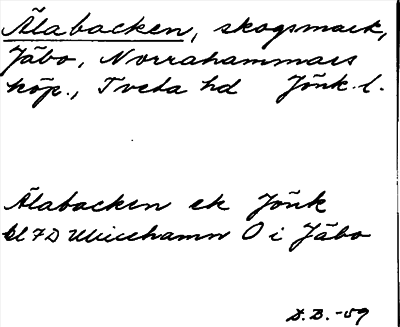 Älabacken, skogsmark,
Jäbo, Norrahammars
köp., Tveta hd Jönk. l.
Älabacken ek Jönk
bl 7D Ulricehamn O i Jäbo
D.B.-59